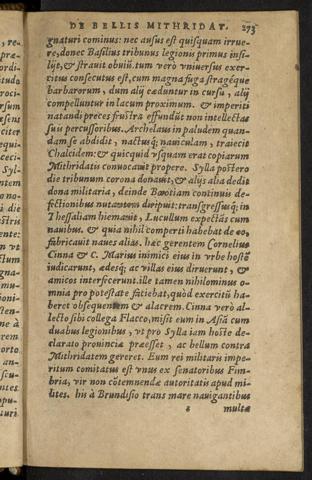 DE BELLIS MITHRIDAT. 273
gnaturi cominus: nec ausus est quisquam irrue-
re, donec Basilius tribunus legionis primus insi-
lijt, & strauit obuiũ. tum vero vniuersus exer-
citus consecutus est, cum magna fuga strageq́ue
barbarorum, dum alij cæduntur in cursu, alij
compelluntur in lacum proximum. & imperiti
natandi preces frustra effundũt non intellectas
suis percussoribus. Archelaus in paludem quan-
dam se abdidit, nactusq́; nauiculam, traiecit
Chalcidem: & quicquid vsquam erat copiarum
Mithridatis conuocauit propere. Sylla postero
die tribunum corona donauit, & alijs alia dedit
dona militaria, deinde Bœotiam continuis de-
fectionibus nutantem diripuit: transgressusq́; in
Thessaliam hiemauit, Lucullum expectãs cum
nauibus. & quia nihil comperti habebat de eo,
fabricauit naues alias. hæc gerentem Cornelius
Cinna & C. Marius inimici eius in vrbe hostẽ
iudicarunt, ædesq́; ac villas eius diruerunt, &
amicos interfecerunt. ille tamen nihilominus o-
mnia pro potestate faciebat, quòd exercitũ ha-
beret obsequentem & alacrem. Cinna verò al-
lecto sibi collega Flacco, misit eum in Asiã cum
duabus legionibus, vt pro Sylla iam hoste de-
clarato prouinciæ præesset, ac bellum contra
Mithridatem gereret. Eum rei militaris impe-
ritum comitatus est vnus ex senatoribus Fim-
bria, vir non cõtemnendæ autoritatis apud mi-
lites. his à Brundisio trans mare nauigantibus
s multæ